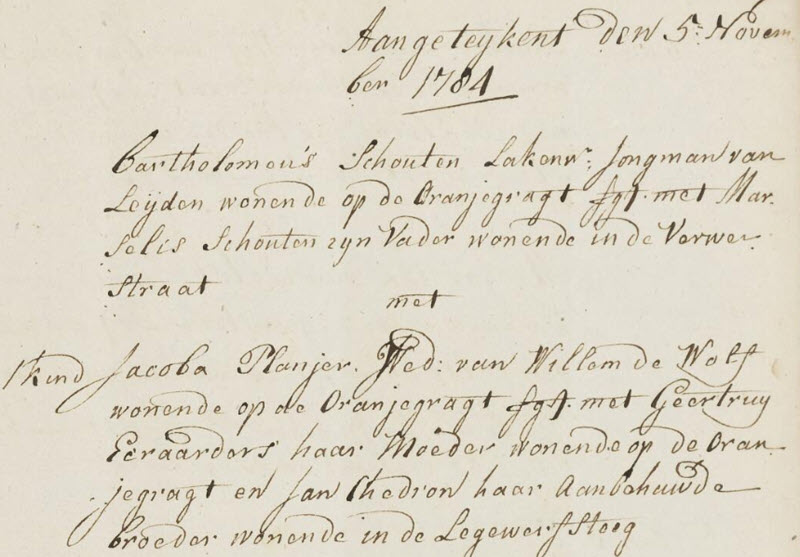 Aangeteykent den 5: Novem
ber 1784
Bartholomeus Schouten Lakenwr: Jongman van
Leijden wonende op de Oranjegragt fgt. met Mar-
selis Schouten zyn Vader wonende in de Verwer
Straat
met
1 kind Jacoba Planjer. Wed: van Willem de Wolf
wonende op de Oranjegragt fgt. met Geertruy
Eeraarders haar Moeder wonende op de Oran-
jegragt en Jan Chedron haar Aanbehuwde
broeder wonende in de Legewerfsteeg